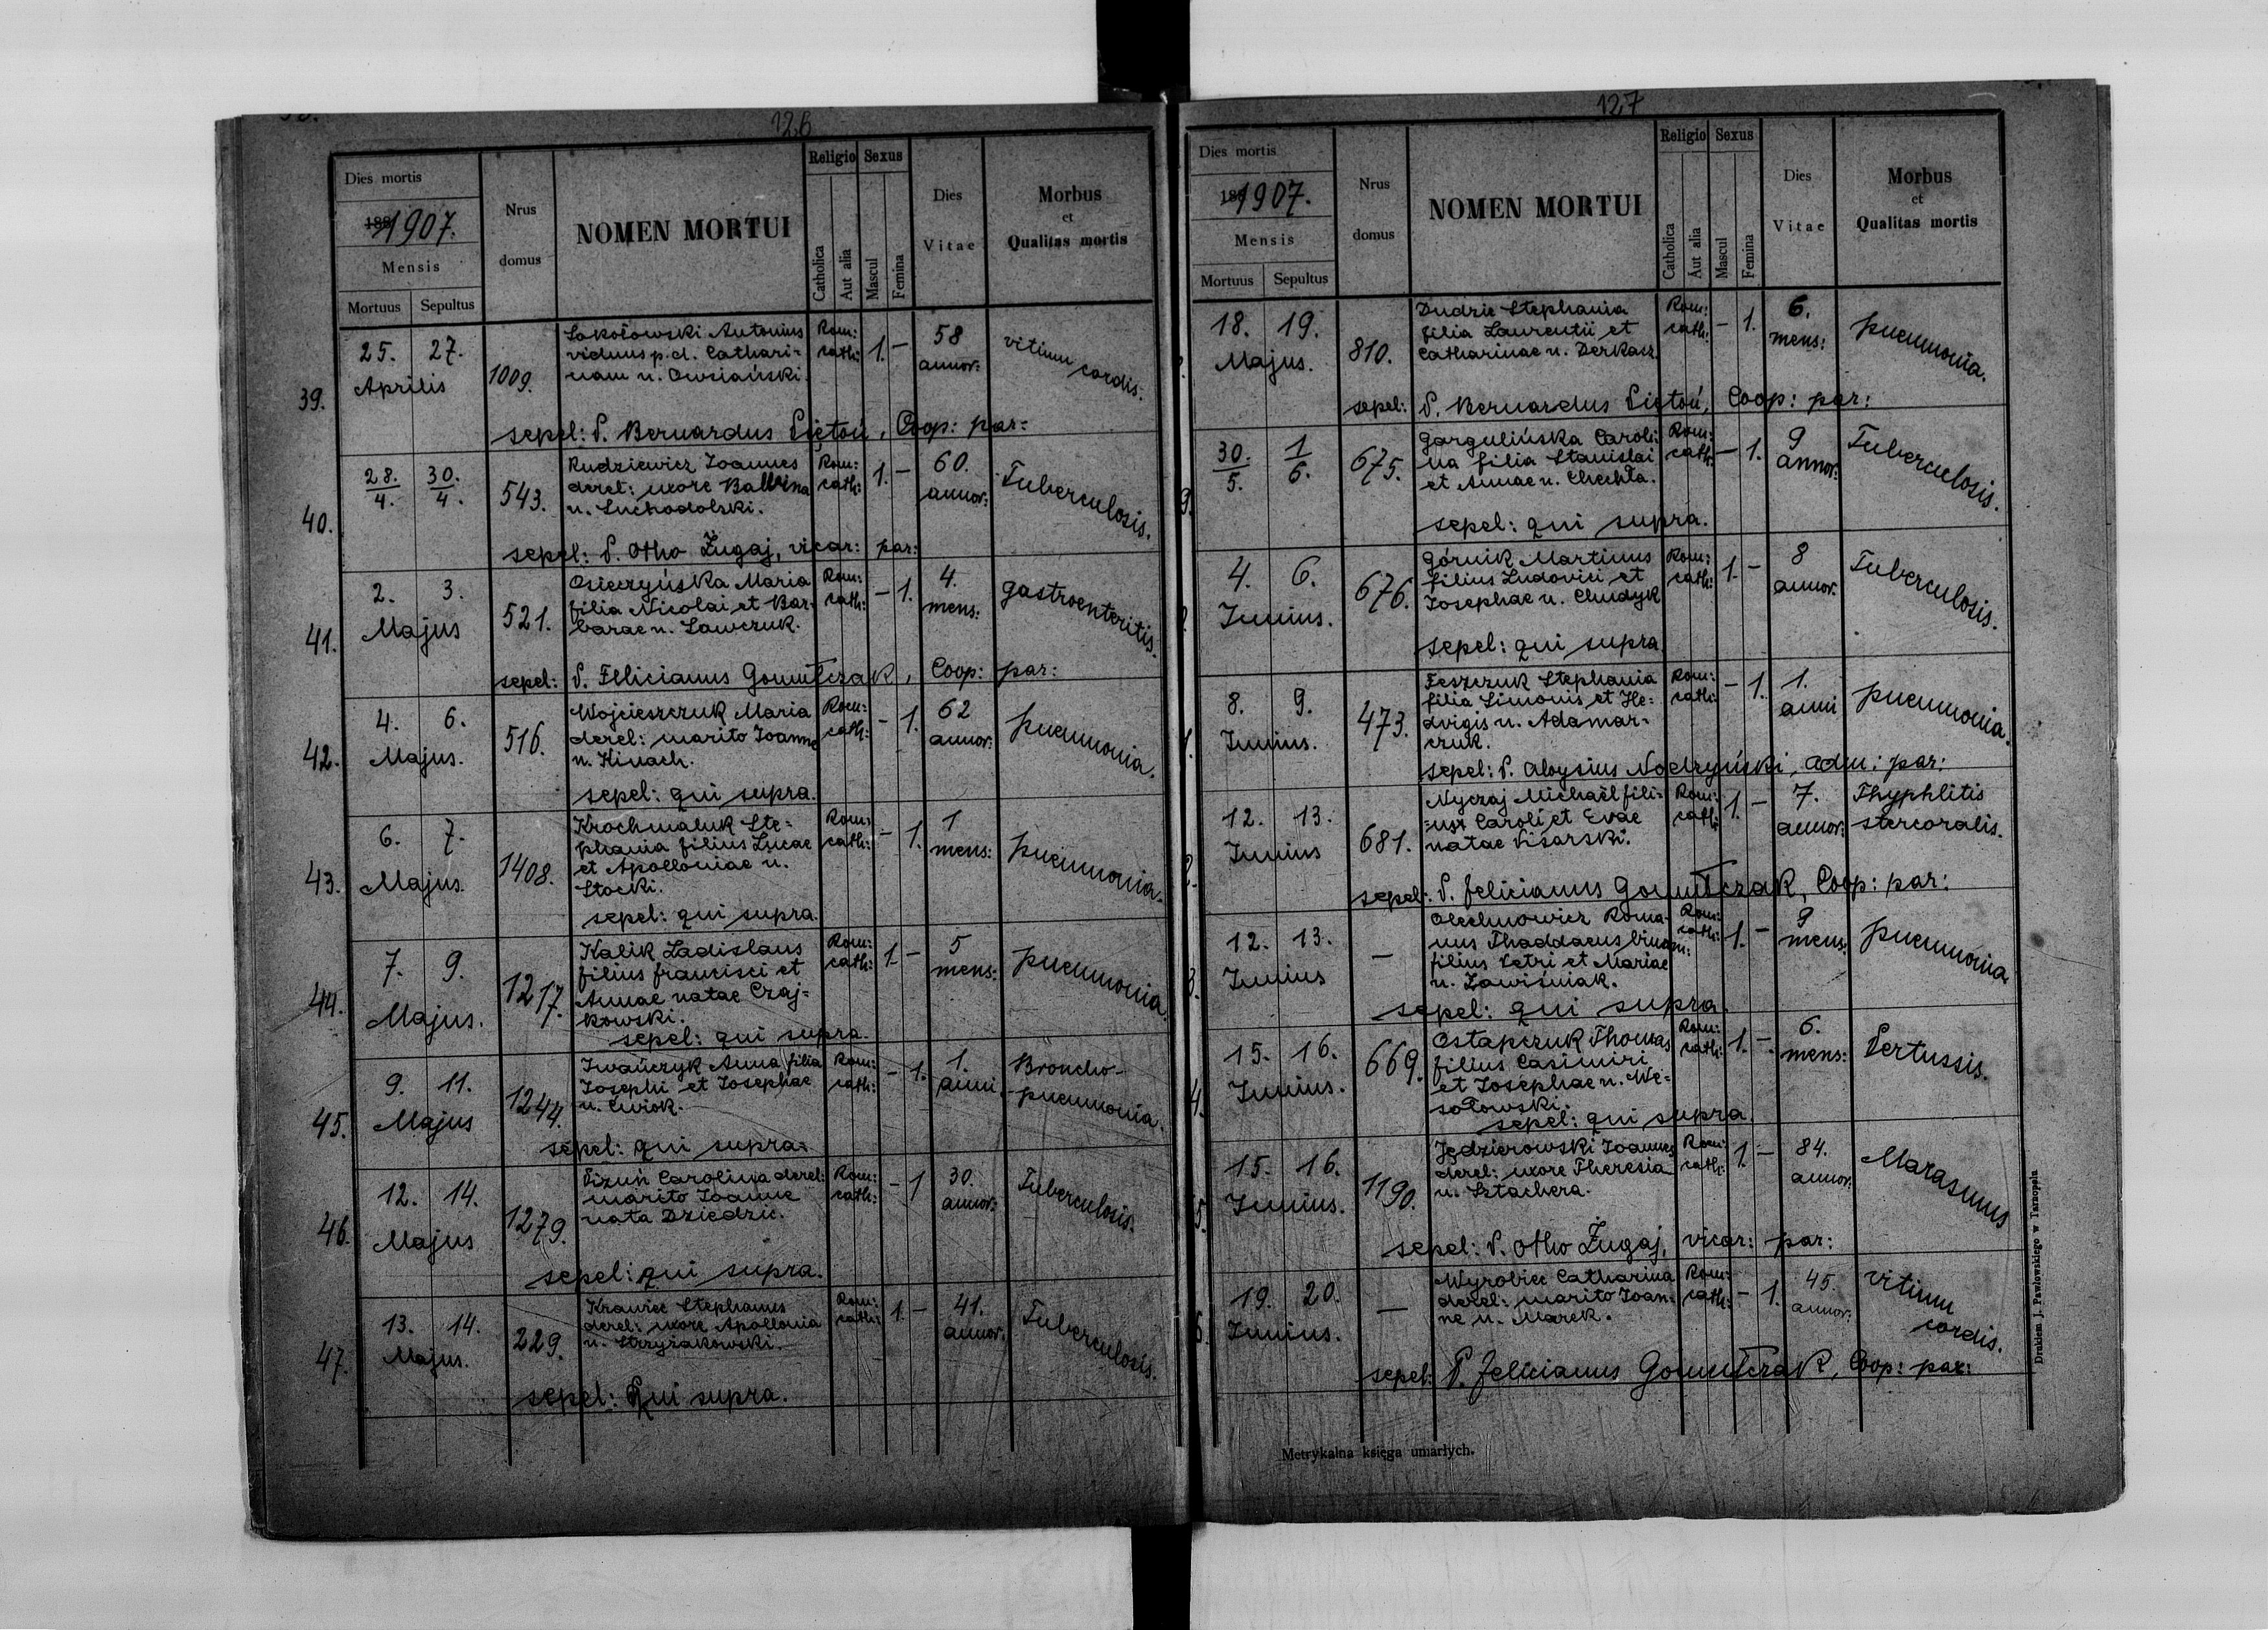 126
Dies mortis
1907.
Mensis
Mortuus Sepultus
Nrus
domus
NOMEN MORTUI
Religio
Catholica
Aut alia
Sexus
Mascul
Femina
Dies
Vitae
Morbus
et
Qualitas mortis
39.
25. 27.
Aprilis
1009.
Sokołowski Antonius
viduus p. d. Cathari-
nam n. Owsiański.
Rom:
cath:
1. -
58
annor:
vitium
cordis.
sepel: P. Bernardus Piętoń, Coop: par:
40.
28. 30.
4. 4.
543.
Rudziewicz Joannes
derel: uxore Balbina
n. Suchodolski.
Rom:
cath:
1. -
60.
annor:
Tuberculosis.
sepel: P. Otho Żugaj, vicar: par:
41.
2. 3.
Majus
521.
Osieczyńska Maria
filia Nicolai et Bar-
barae n. Sawczuk.
Rom:
cath:
- 1.
4.
mens:
gastroenteritis.
sepel: P. Felicianus Gomułczak, Coop: par:
42.
4. 6.
Majus.
516.
Wojcieszczuk Maria
derel: marito Joanne
n. Hinach.
Rom:
cath:
- 1.
62
annor:
pneumonia.
sepel: qui supra.
43.
6. 7.
Majus.
1408.
Krochmaluk Ste-
phania filius Lucae
et Apolloniae n.
Stocki.
Rom:
cath:
- 1.
1
mens:
pneumonia.
sepel: qui supra.
44.
7. 9.
Majus.
1217.
Kalik Ladislaus
filius Francisci et
Annae natae Czaj-
kowski.
Rom:
cath:
1. -
5
mens:
pneumonia.
sepel: qui supra.
45.
9. 11.
Majus
1244.
Iwańczyk Anna filia
Josephi et Josephae
n. Ćwiok.
Rom:
cath:
- 1.
1.
anni.
Broncho-
pneumonia.
sepel: qui supra.
46.
12. 14.
Majus
1279.
Pizuń Carolina derel:
marito Joanne
nata Dziedzic.
Rom:
cath:
- 1
30.
annor:
Tuberculosis.
sepel: qui supra.
47.
13. 14.
Majus.
229.
Krawiec Stephanus
derel: uxore Apollonia
n. Strzyżakowski.
Rom:
cath:
1. -
41.
annor:
Tuberculosis.
sepel: Qui supra.
127
Dies mortis
1907.
Mensis
Mortuus Sepultus
Nrus
domus
NOMEN MORTUI
Religio
Catholica
Aut alia
Sexus
Mascul
Femina
Dies
Vitae
Morbus
et
Qualitas mortis
18. 19.
Majus.
810.
Dudzic Stephania
filia Laurentii et
Catharinae n. Derkacz
Rom:
cath:
- 1.
6.
mens:
pneumonia.
sepel: P. Bernardus Piętoń, Coop: par:
9.
30. 1
5. 6.
675.
Gargulińska Caroli-
na filia Stanislai
et Annae n. Chechła.
Rom:
cath:
- 1.
9
annor:
Tuberculosis.
sepel: qui supra.
4. 6.
Junius.
676.
Górnik Martinus
filius Ludovici et
Josephae n. Chudyk
Rom:
cath:
1. -
8
annor.
Tuberculosis.
sepel: qui supra
1.
8. 9.
Junius.
473.
Feszczuk Stephania
filia Simonis et He-
dvigis n. Adamar-
czuk.
Rom:
cath:
- 1.
1.
anni
pneumonia.
sepel: P. Aloysius Nodzyński, adm: par:
2.
12. 13.
Junius
681.
Nyczaj Michaël fili-
us Caroli et Evae
natae Pisarski.
Rom:
cath:
1. -
7.
annor:
Thyphlitis
stercoralis.
sepel: P. Felicianus Gomułczak, Coop: par:
3.
12. 13.
Junius
-
Olechnowicz Roma-
nus Thaddaeus binom:
filius Petri et Mariae
n. Zawiśniak.
Rom:
cath:
1. -
9
mens:
pneumonia
sepel: qui supra.
4.
15. 16.
Junius.
669.
Ostapczuk Thomas
filius Casimiri
et Josephae n. We-
sołowski.
Rom:
cath:
1. -
6.
mens:
Pertussis.
sepel: qui supra.
5.
15. 16.
Junius.
1190.
Jędzierowski Joannes
derel: uxore Theresia
n. Sztachera.
Rom:
cath:
1. -
84.
annor:
Marasmus
sepel: P. Otho Żugaj, vicar: par:
6.
19. 20.
Junius.
-
Wyrobiec Catharina
derel: marito Joan-
ne n. Marek.
Rom:
cath:
- 1.
45.
annor:
vitium
cordis.
sepel: P. Felicianus Gomułczak, Coop: par:
Metrykalna księga umarłych.
Drukiem J. Pawłowskiego w Tarnopolu